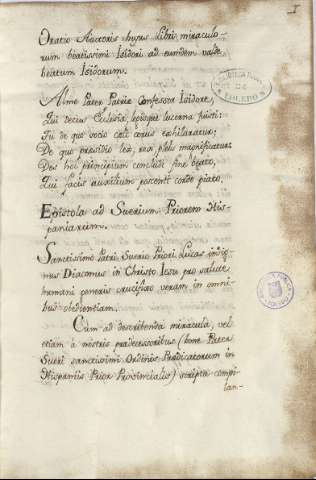 1
Oratio Auctoris hujus libri miraculo-
rum beatissimi Isidori ad eundem valde
beatum Isidorum.
Alme Pater Patriæ Confessor Isidore,
Qui decus Ecclesiæ,
Tu de quo socio
De quo presidio lex, rex, plebs magnificatur
Dei hoc principium concludi fine beato,
Qui facis auxilium poscenti corde piato.
Epistola ad Suerium Priorem His-
paniarum.
Sanctissimo Patri Suerio Priori Lucas indig-
nus Diaconus in Christo Iesu pro salute
humani generis crucifixo veram in omni-
bus obedientiam.
Cum ad describenda miracula, vel
etiam à nostris predecessoribus (bone Pater
Sueri sanctissimi Ordinis Predicatorum in
Hispaniis Prior Provincialis) scripta compi-
lan-